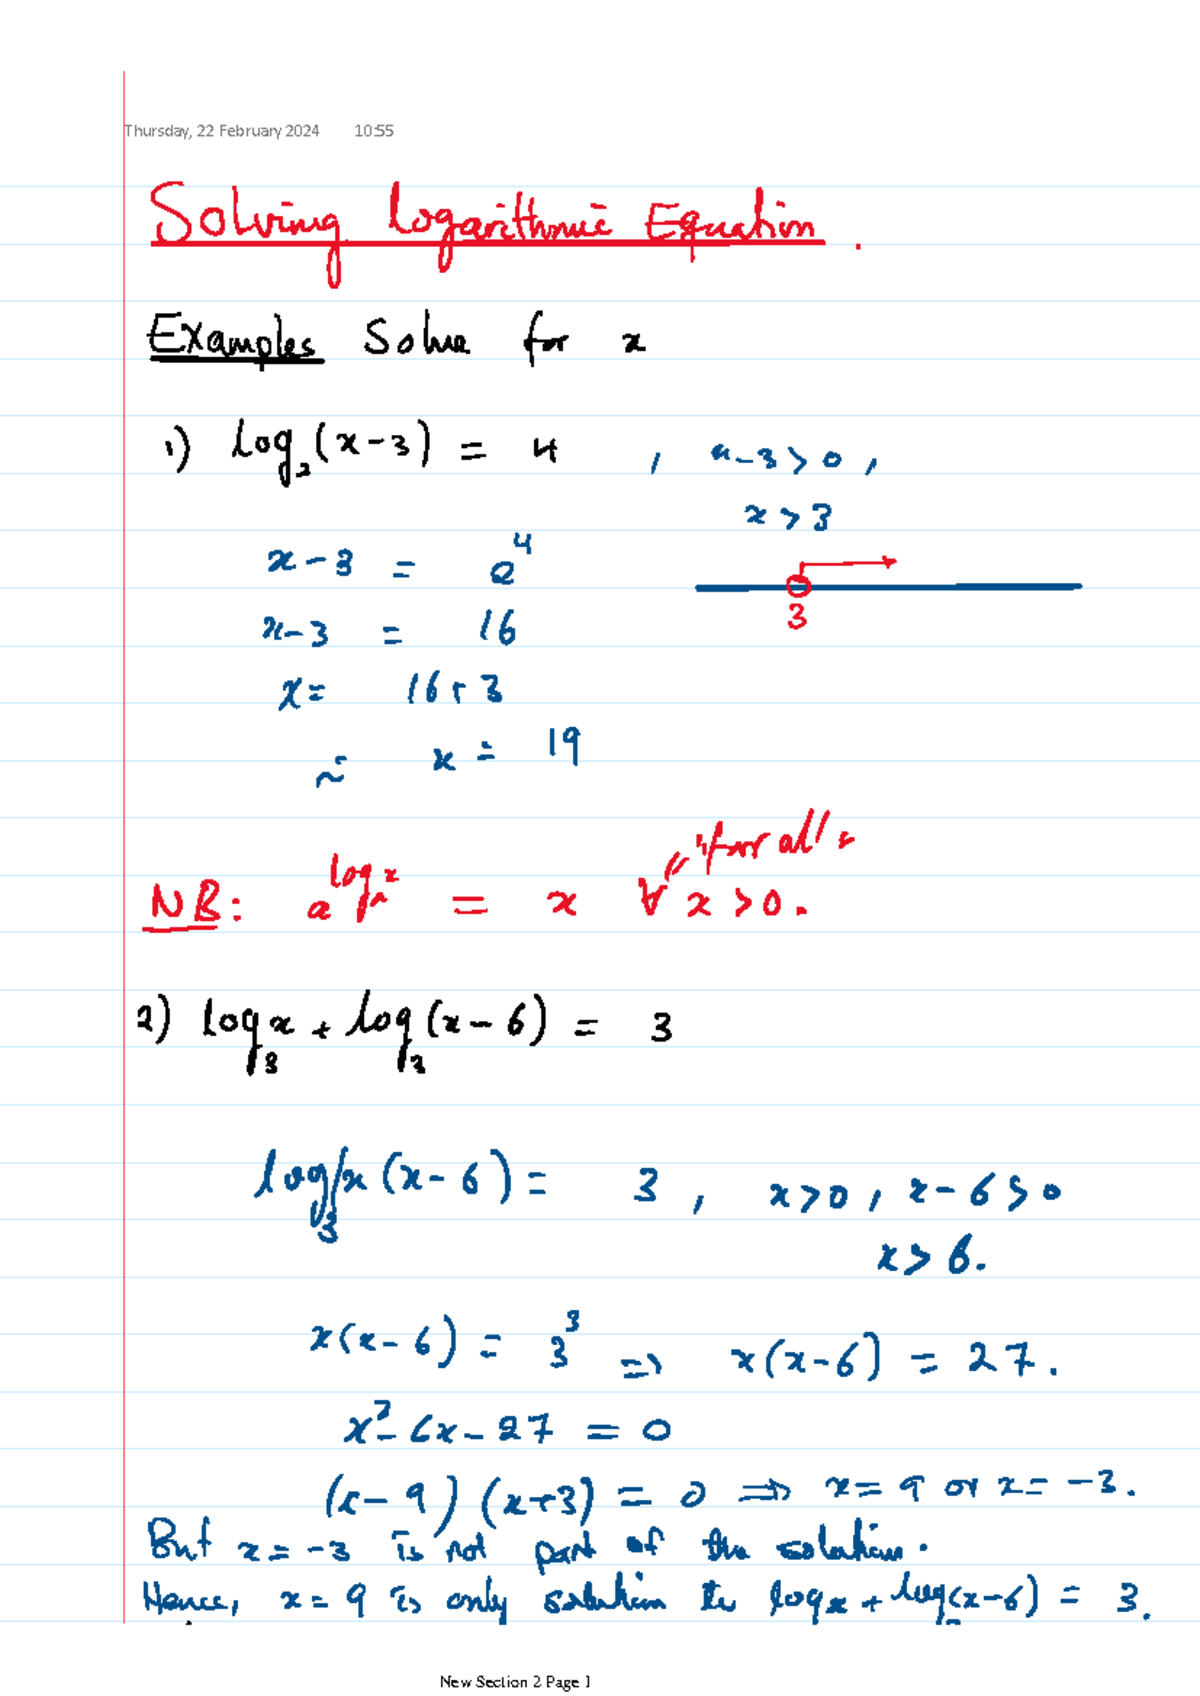 Thursday, 22 February 2024 10:55
Solving Logarithmic Equation.
Examples Solve for x
1) log₂(x-3) = 4 , x-3>0,
x>3
x-3 = 2⁴
3
x-3 = 16
x= 16+3
x = 19
"for all"
NB: a^(logₐx) = x ∀ x>0.
2) log₃x + log₃(x-6) = 3
log₃x(x-6) = 3 , x>0, x-6>0
x>6.
x(x-6) = 3³ => x(x-6) = 27.
x²-6x-27 = 0
(x-9)(x+3) = 0 => x=9 or x=-3.
But x=-3 is not part of the solution.
Hence, x=9 is only solution to log₃x + log₃(x-6) = 3.
New Section 2 Page 1